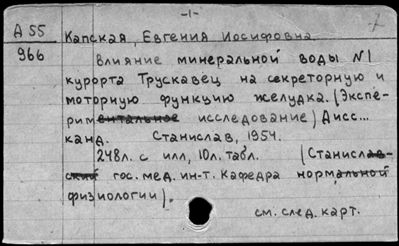 -1-
А 55 Капская, Евгения Иосифовна.
966 Влияние минеральной воды N1
курорта Трускавец на секреторную и
моторную функцию желудка. (Экспе-
риментальное исследование) Дисс...
канд. Станислав, 1954.
248л. с илл, 10л. табл. (Станислав-
ский гос. мед. ин-т. Кафедра нормальной
физиологии).
см. след. карт.